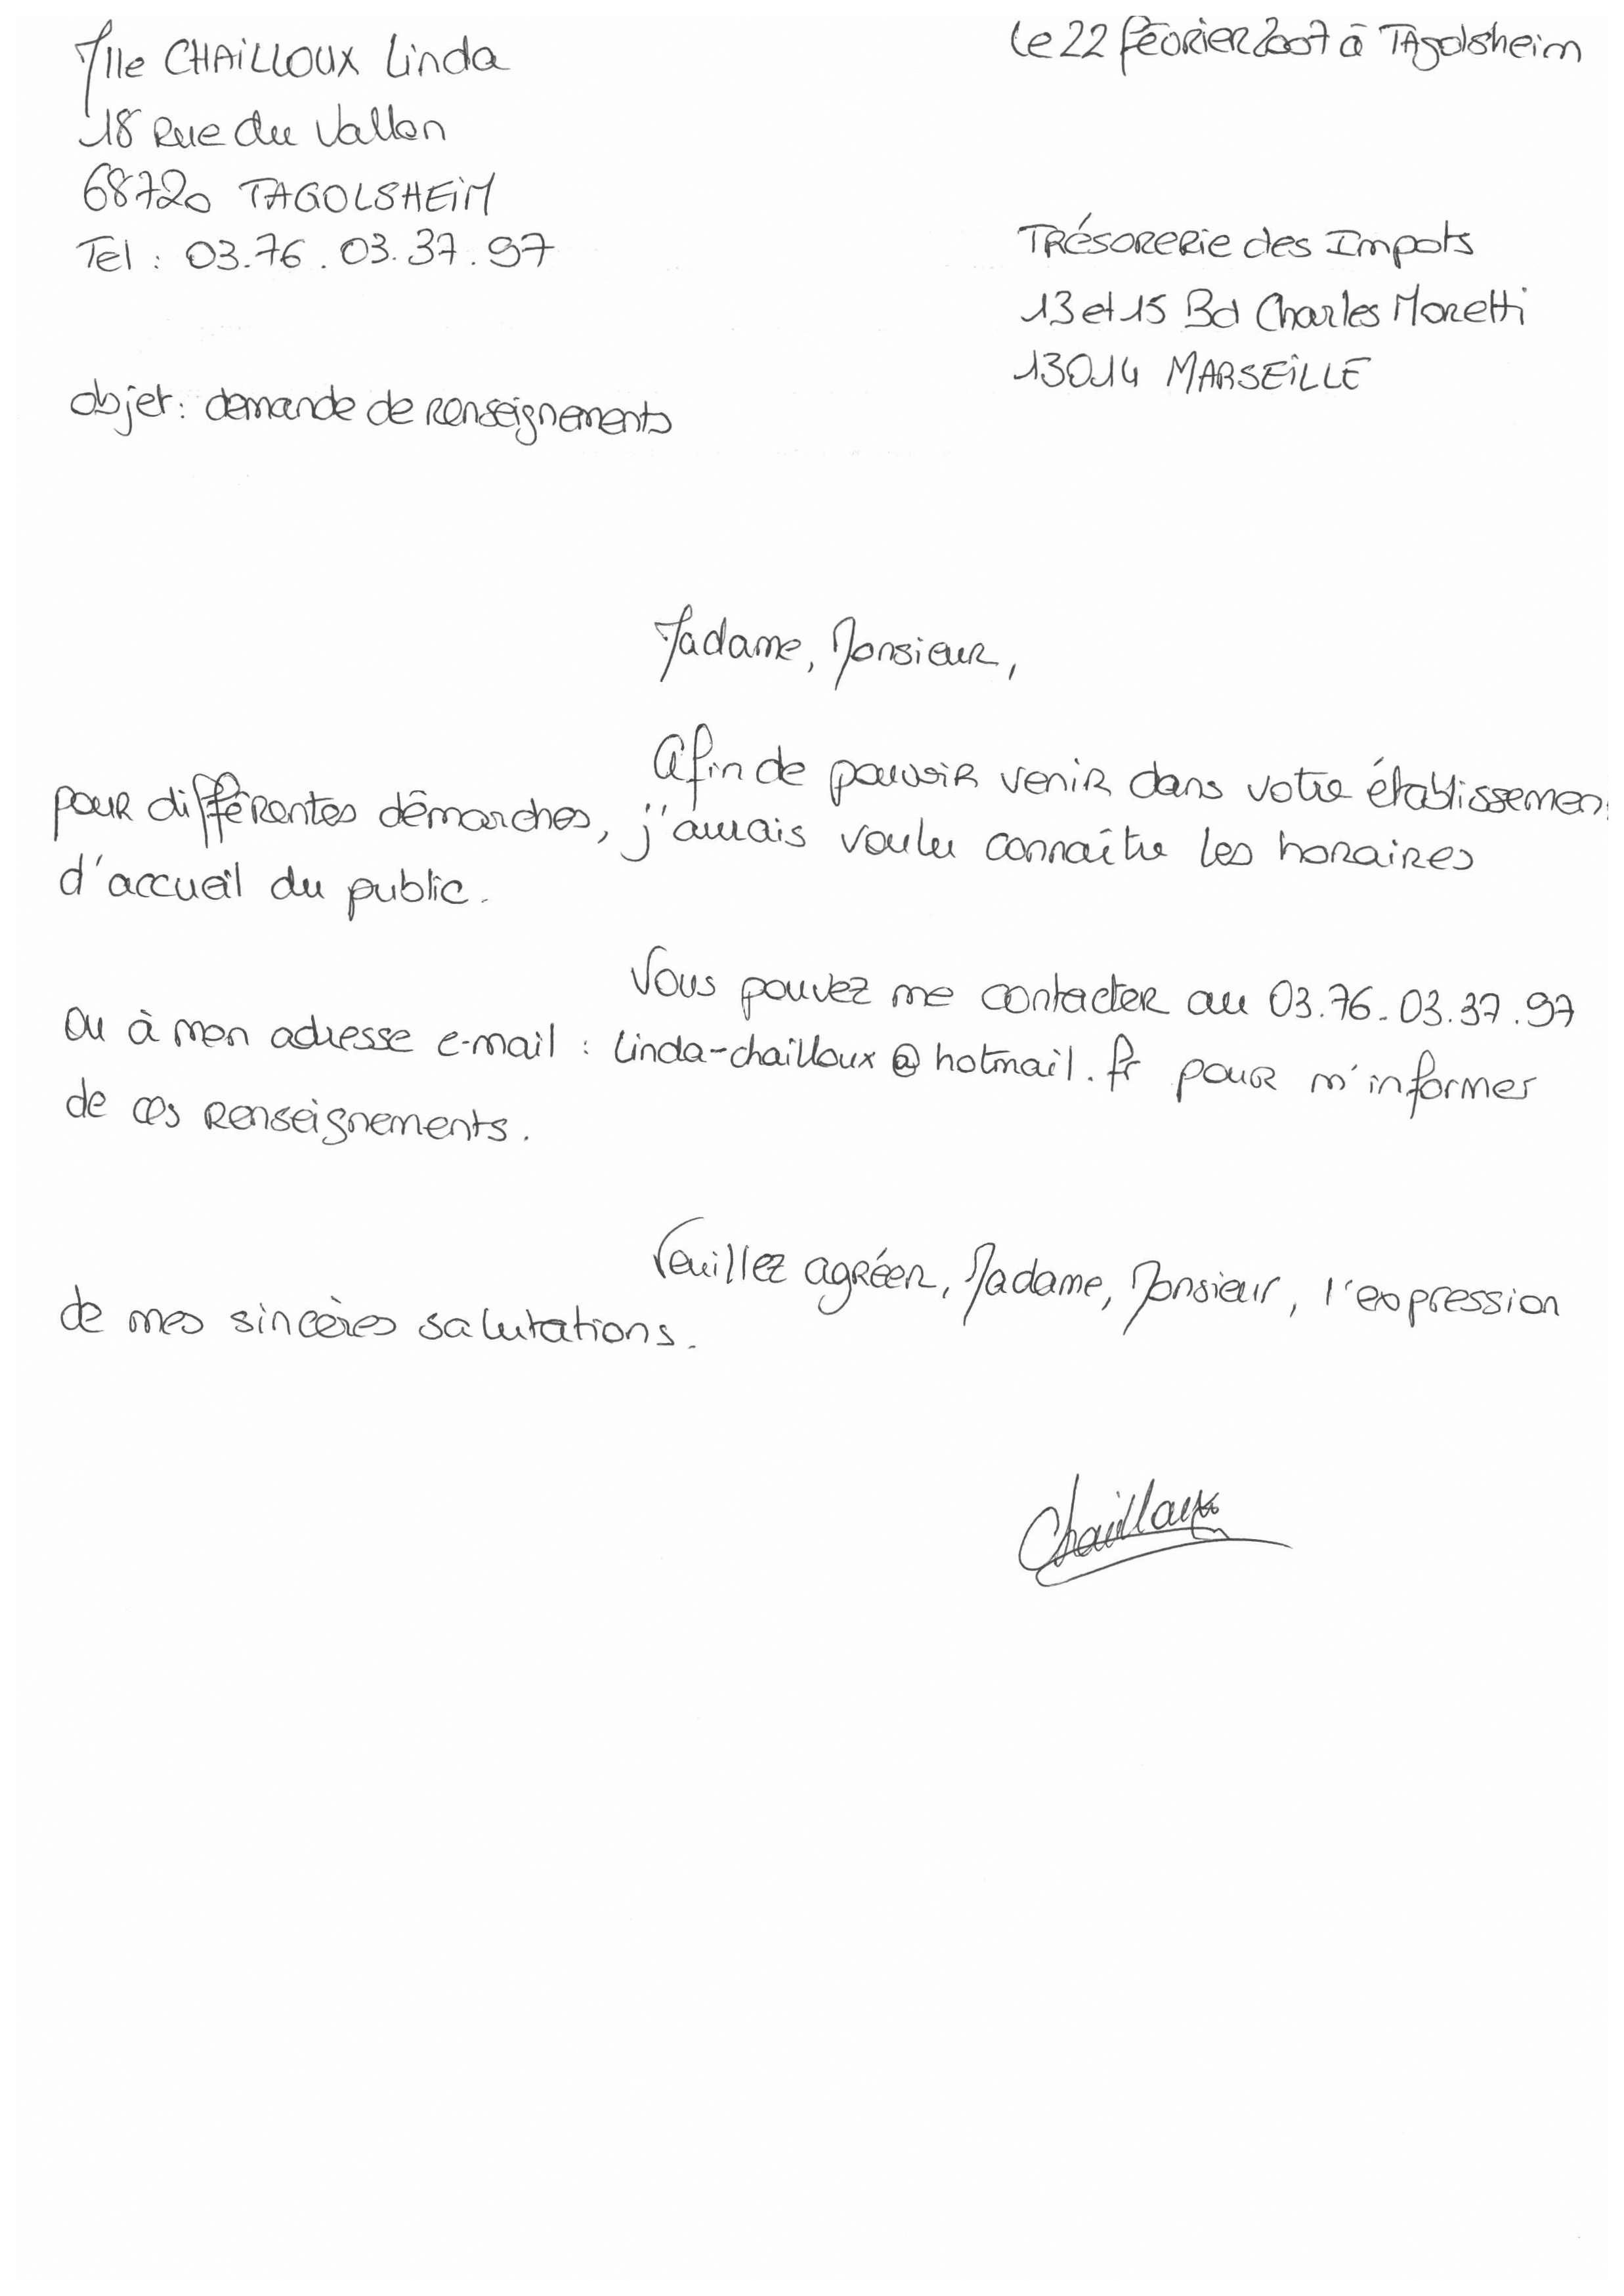 Mlle CHAILLOUX Linda
18 Rue du Vallon
68720 TAGOLSHEIM
Tel : 03.76.03.37.97
Le 22 février 2007 à TAgolsheim
Trésorerie des Impots
13 et 15 Bd Charles Moretti
13014 MARSEILLE
objet : demande de renseignements
Madame, Monsieur,
Afin de pouvoir venir dans votre établissemen
pour différentes démarches, j'aurais voulu connaître les horaires
d'accueil du public.
Vous pouvez me contacter au 03.76.03.37.97
ou à mon adresse e-mail : linda-chailloux@hotmail.fr pour m'informer
de ces renseignements.
Veuillez agréer, Madame, Monsieur, l'expression
de mes sincères salutations.
Chailloux